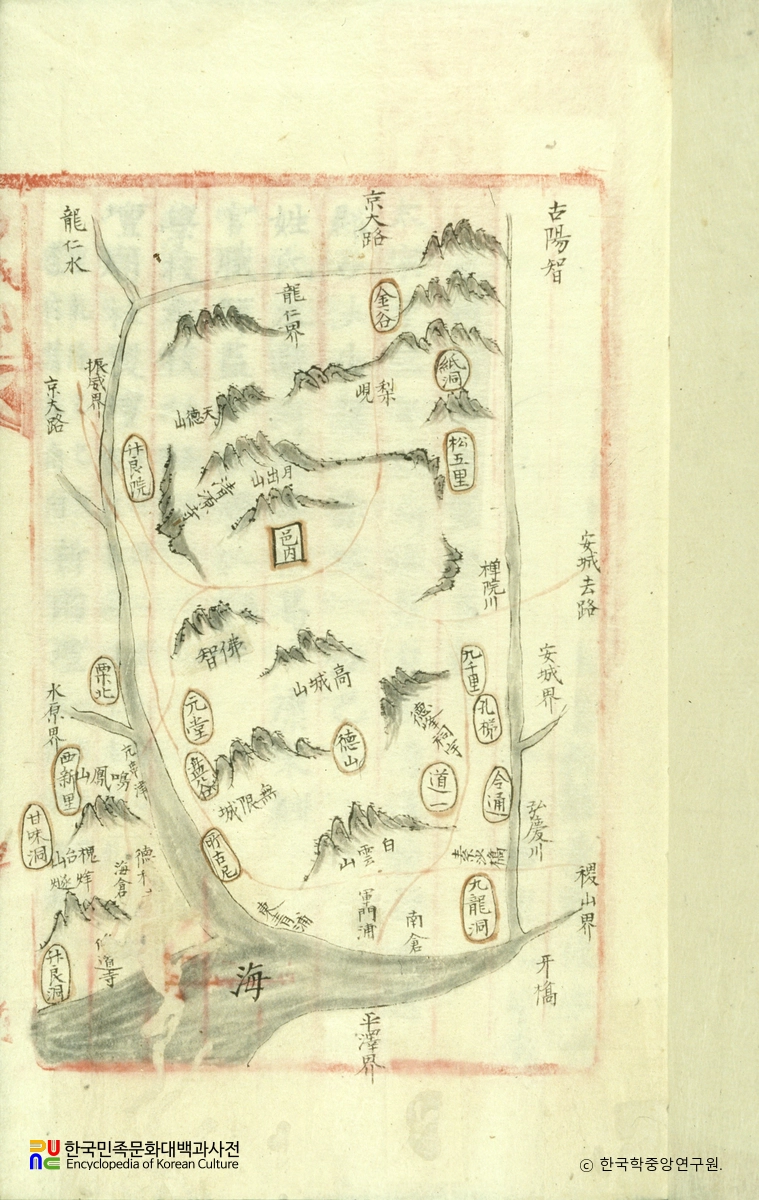 古陽智
京大路
龍仁水
龍仁界
金谷
紙洞
梨峴
振威界
京大路
天德山
松五里
月出山
清源寺
邑內
禅院川
安城去路
佛智
高城山
九千里
孔梯
安城界
栗北
水原界
元堂
德山
道一
令通
弘慶川
西新里
鳴鳳山
無限城
盃谷
甘味洞
槐台山
烽燧
海倉
所古尼
白雲山
九龍洞
稷山界
東青浦
軍門浦
南倉
牙橋
海
平澤界
한국민족문화대백과사전
Encyclopedia of Korean Culture
ⓒ 한국학중앙연구원.